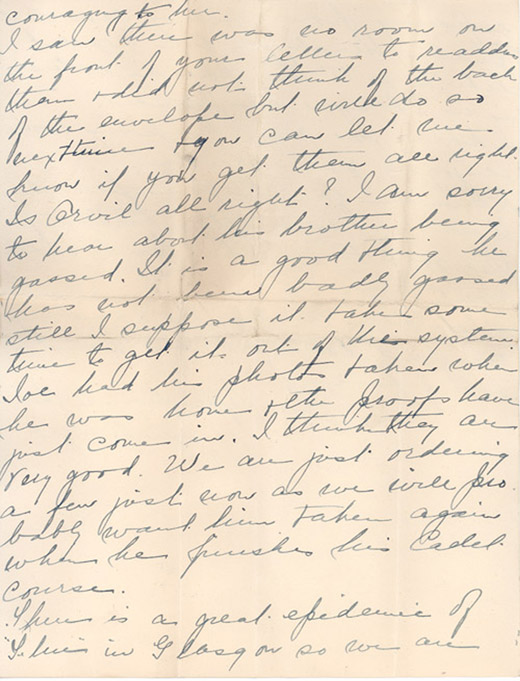 couraging to him.
I saw there was no room on
the front of your letters to readdress
them & did not think of the back
of the envelope but will do so
next time & you can let me
know if you get them all right.
Is Orvil all right? I am sorry
to hear about his brother being
gassed. It is a good thing he
has not been badly gassed
still I suppose it takes some
time to get it out of the system.
Joe had his photos taken when
he was home & the proofs have
just come in. I think they are
very good. We are just ordering
a few just now as we will pro
bably want him taken again
when he finishes his Cadet
course.
There is a great epidemic of
Flu in Glasgow so we are